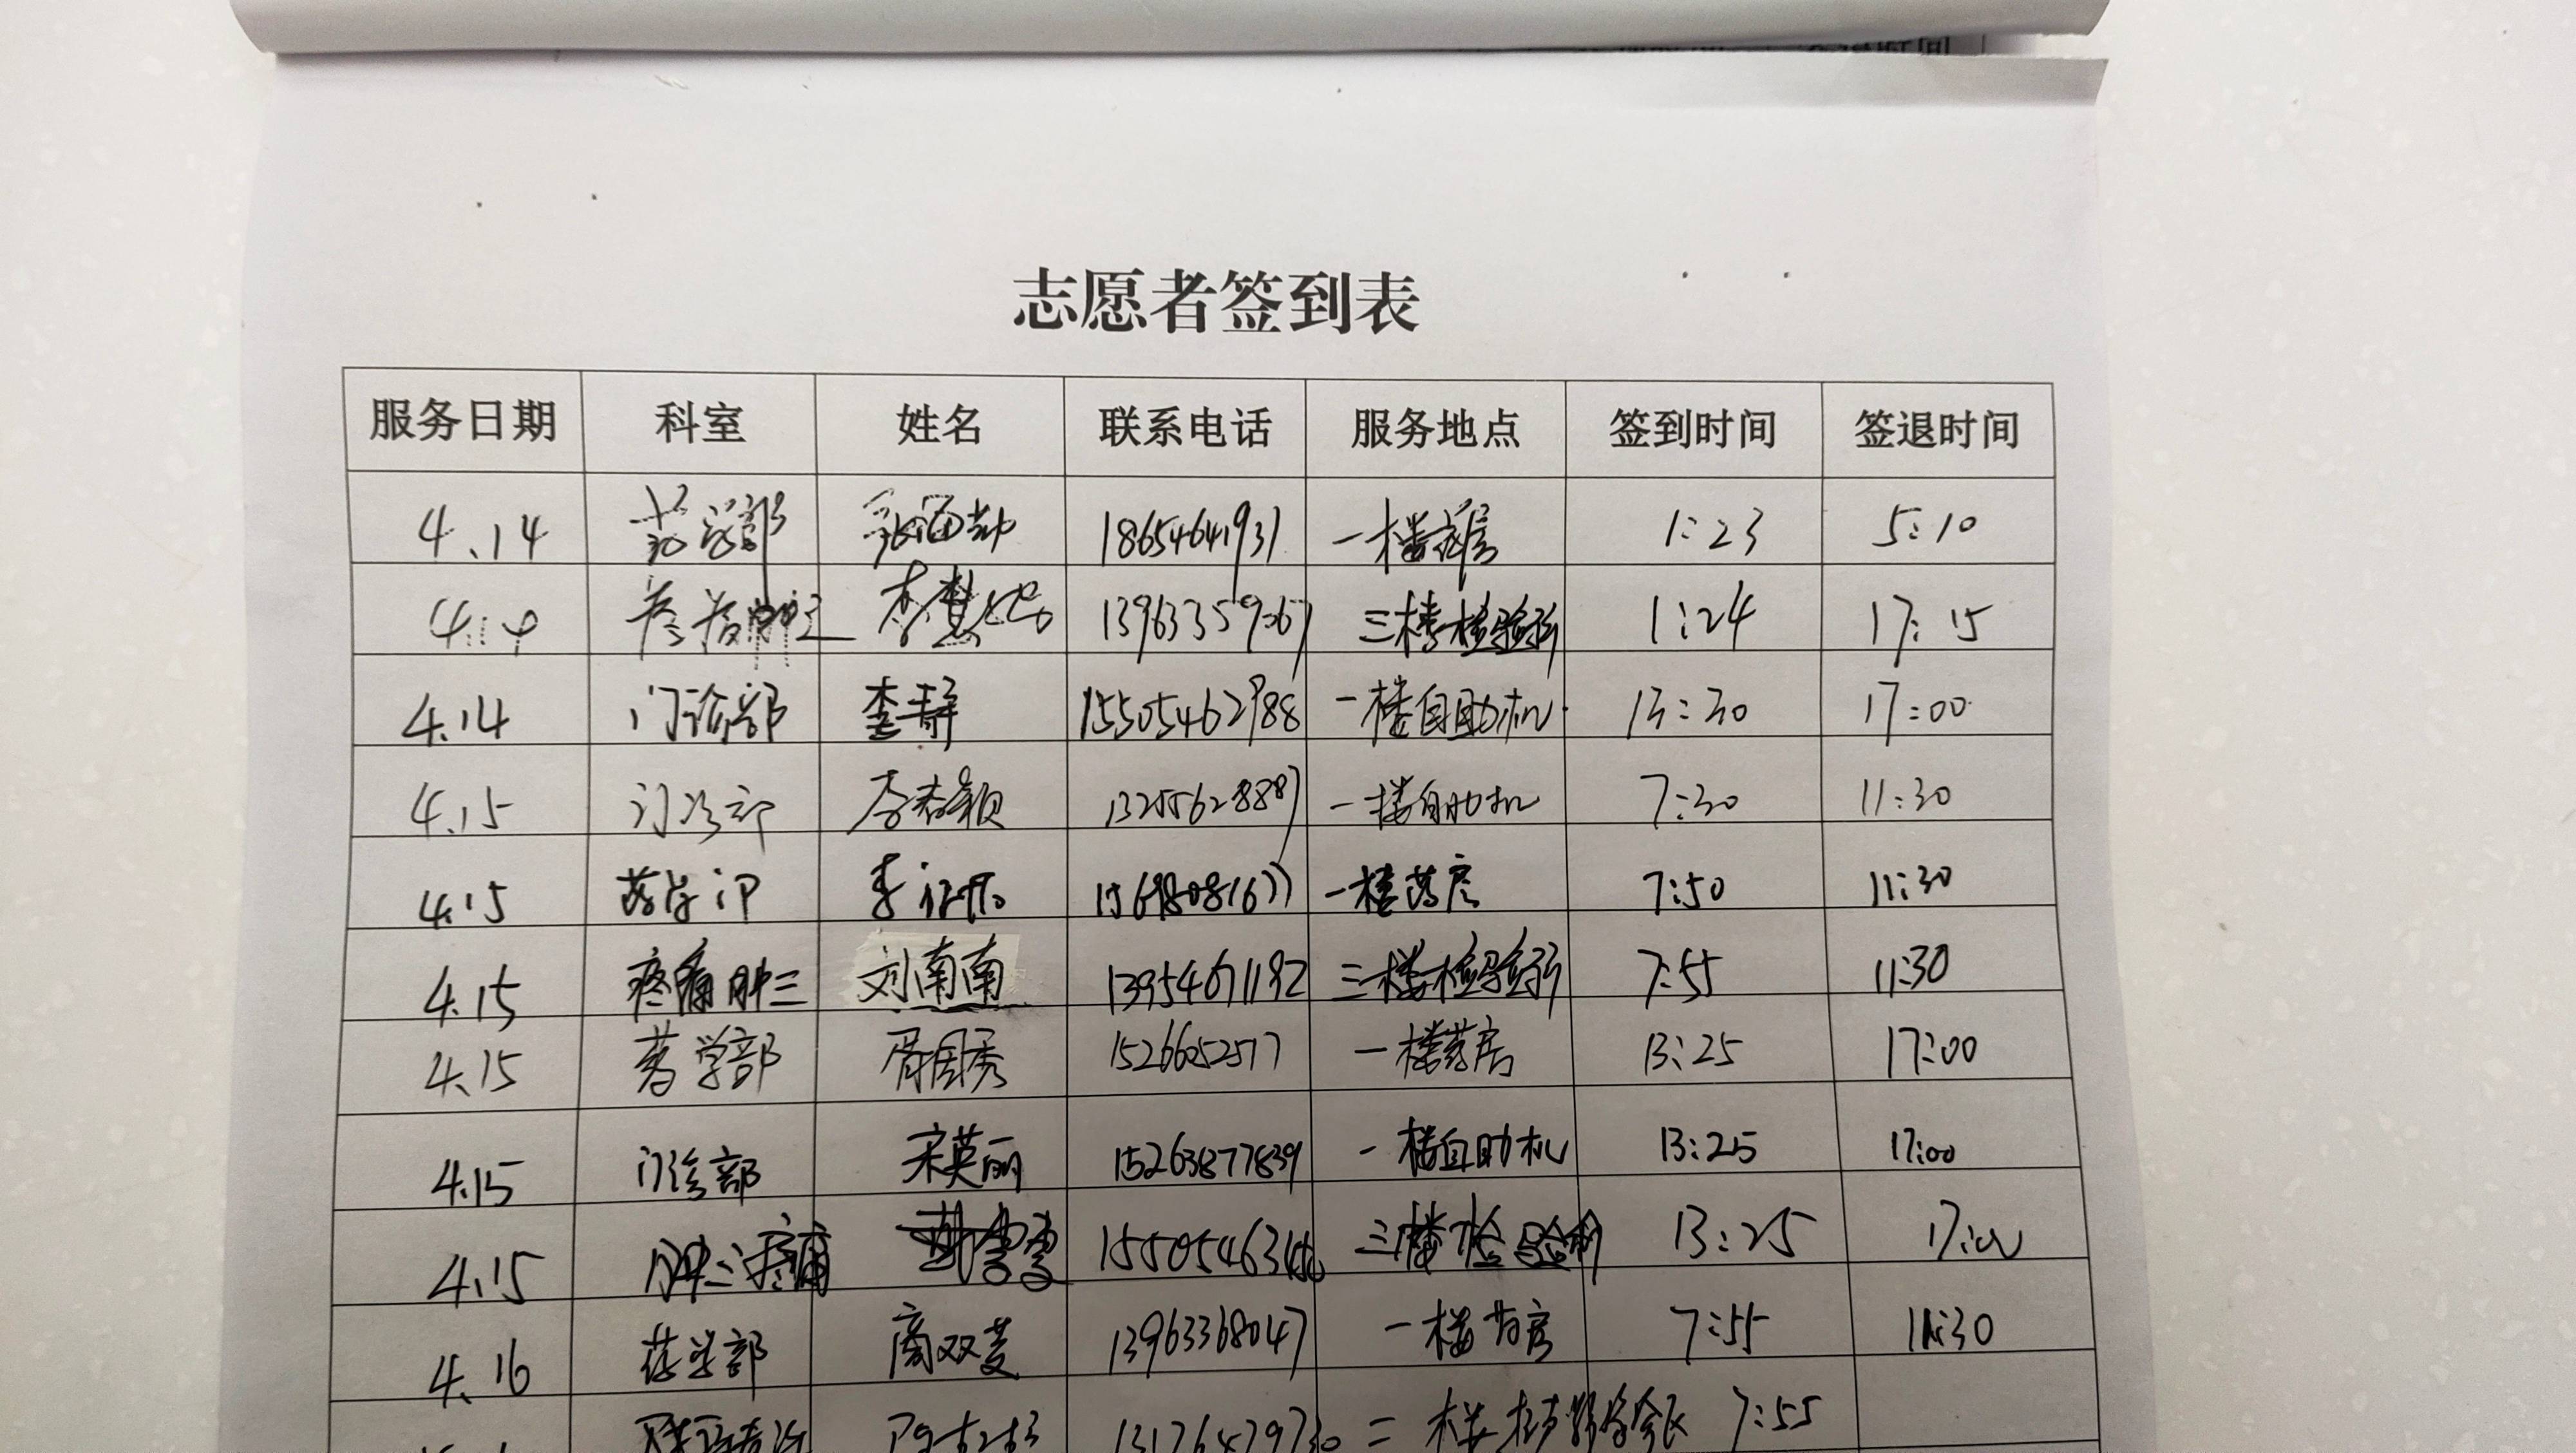 志愿者签到表
服务日期 科室 姓名 联系电话 服务地点 签到时间 签退时间
4.14 药学部 18654641931 一楼药房 1:23 5:10
4.14 13963359067 三楼检验科 1:24 17:15
4.14 门诊部 李静 15505462988 一楼自助机 13:30 17:00
4.15 门诊部 李春颖 13255628887 一楼自助机 7:30 11:30
4.15 药学部 李 一楼药房 7:50 11:30
4.15 疼痛肿三 刘南南 13954671192 三楼检验科 7:55 11:30
4.15 药学部 周秀 15266252517 一楼药房 13:25 17:00
4.15 门诊部 宋英丽 15263877839 一楼自助机 13:25 17:00
4.15 肿三疼痛 雪 三楼检验科 13:25 17:00
4.16 药学部 商双 13963368047 一楼药房 7:55 11:30
二楼 7:55